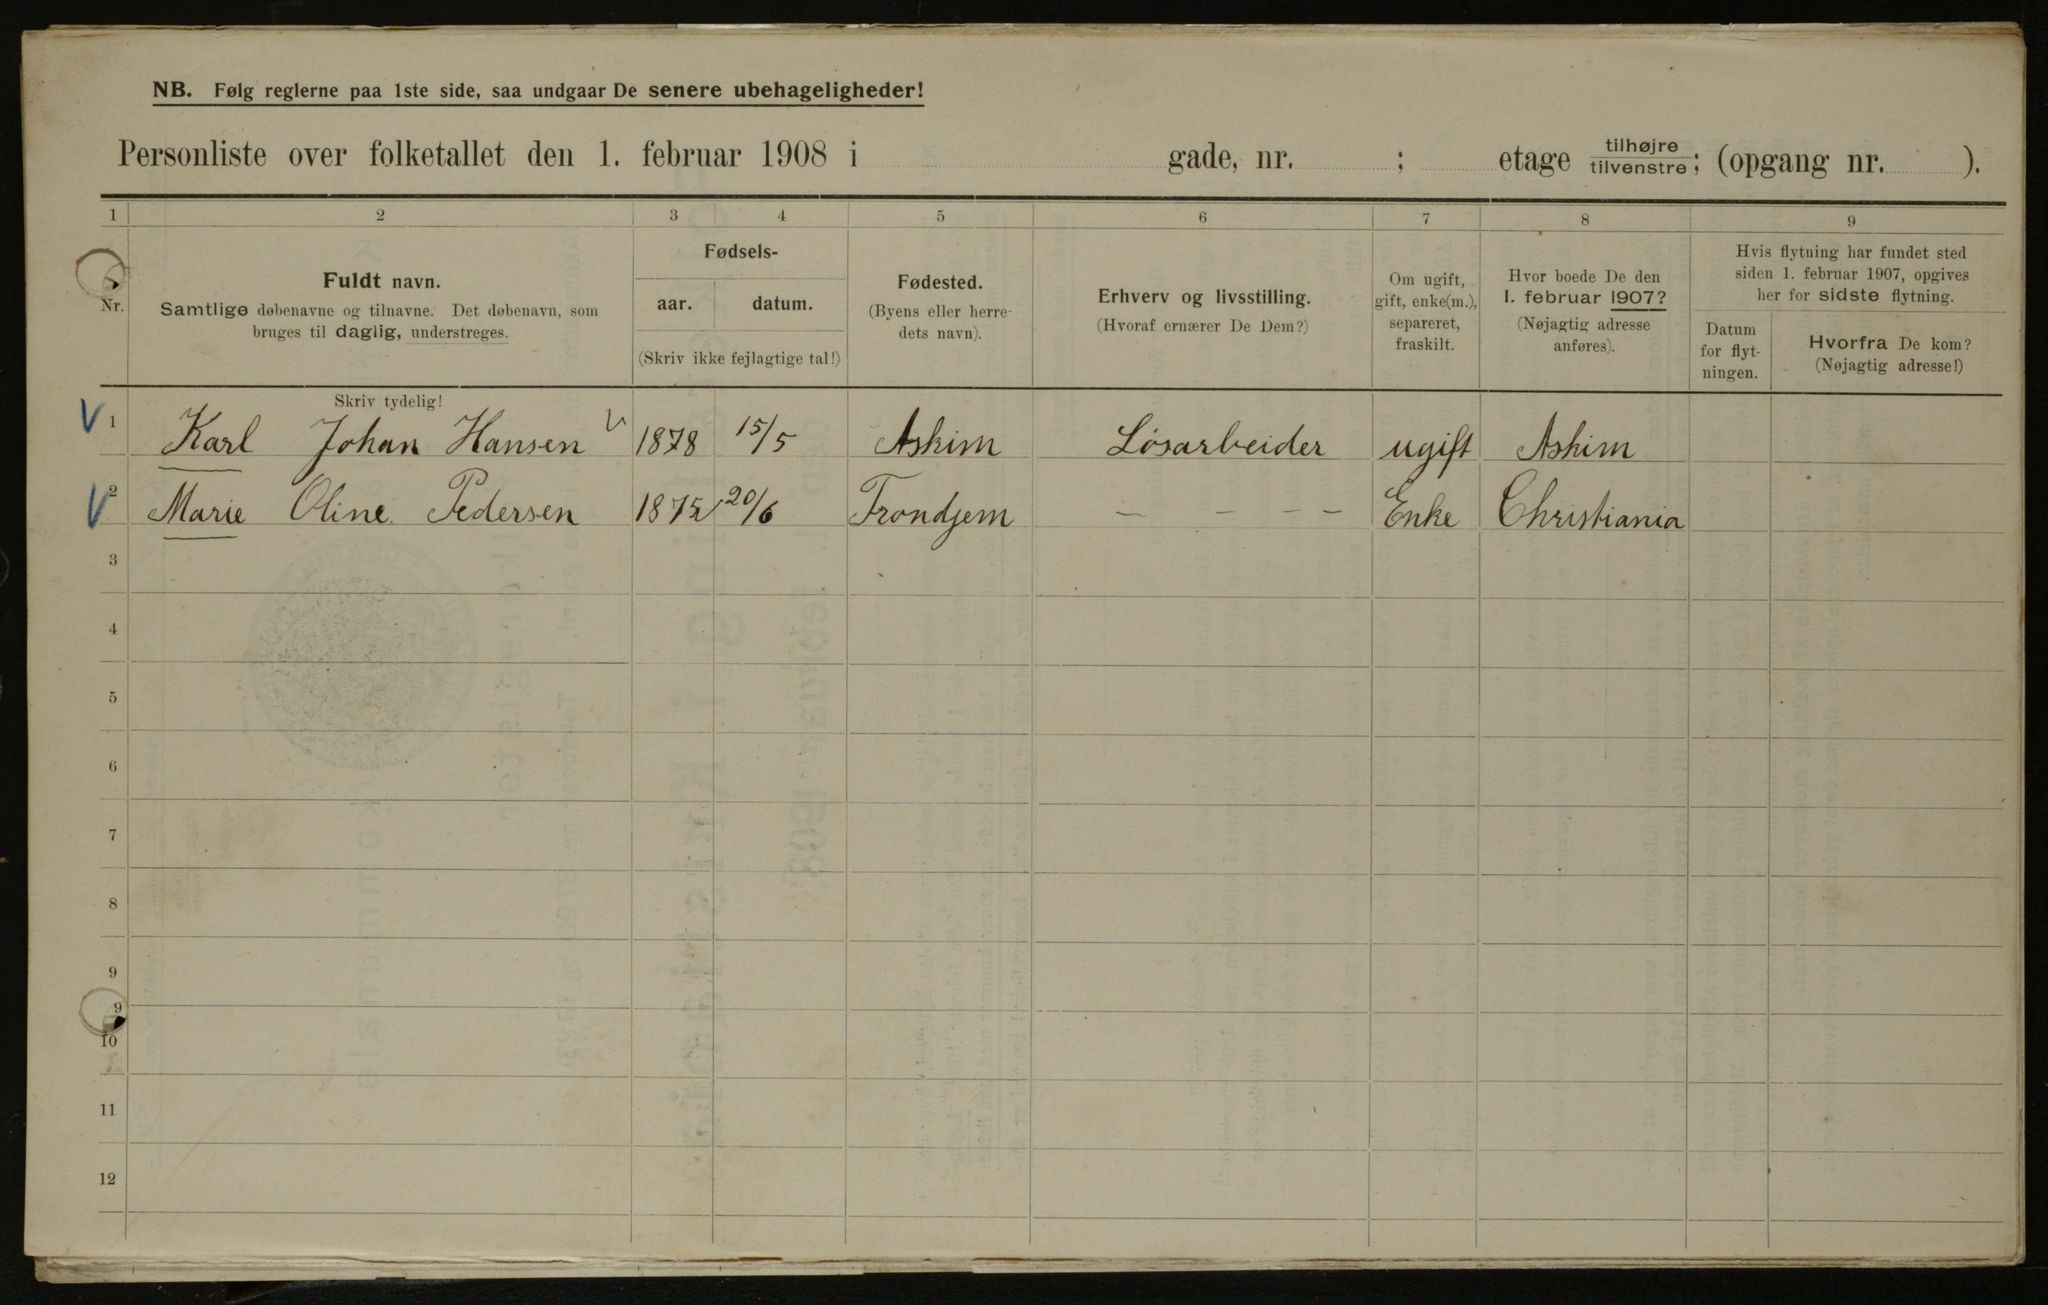 NB. Følg reglerne paa 1ste side, saa undgaar De senere ubehageligheder!
Personliste over folketallet den 1. februar 1908 i gade, nr. ; etage tilhøjre/tilvenstre; (opgang nr. ).
1 2 3 4 5 6 7 8 9
Nr.
Fuldt navn.
Samtlige døbenavne og tilnavne. Det døbenavn, som
bruges til daglig, understreges.
Fødsels-
aar. datum.
(Skriv ikke fejlagtige tal!)
Fødested.
(Byens eller herre-
dets navn).
Erhverv og livsstilling.
(Hvoraf ernærer De Dem?)
Om ugift,
gift, enke(m.),
separeret,
fraskilt.
Hvor boede De den
1. februar 1907?
(Nøjagtig adresse
anføres).
Hvis flytning har fundet sted
siden 1. februar 1907, opgives
her for sidste flytning.
Datum
for flyt-
ningen.
Hvorfra De kom?
(Nøjagtig adresse!)
Skriv tydelig!
1 Karl Johan Hansen 1878 15/5 Askim Løsarbeider ugift Askim
2 Marie Oline Pedersen 20/6 Trondjem — — — — Enke Christiania
3
4
5
6
7
8
9
9
10
11
12